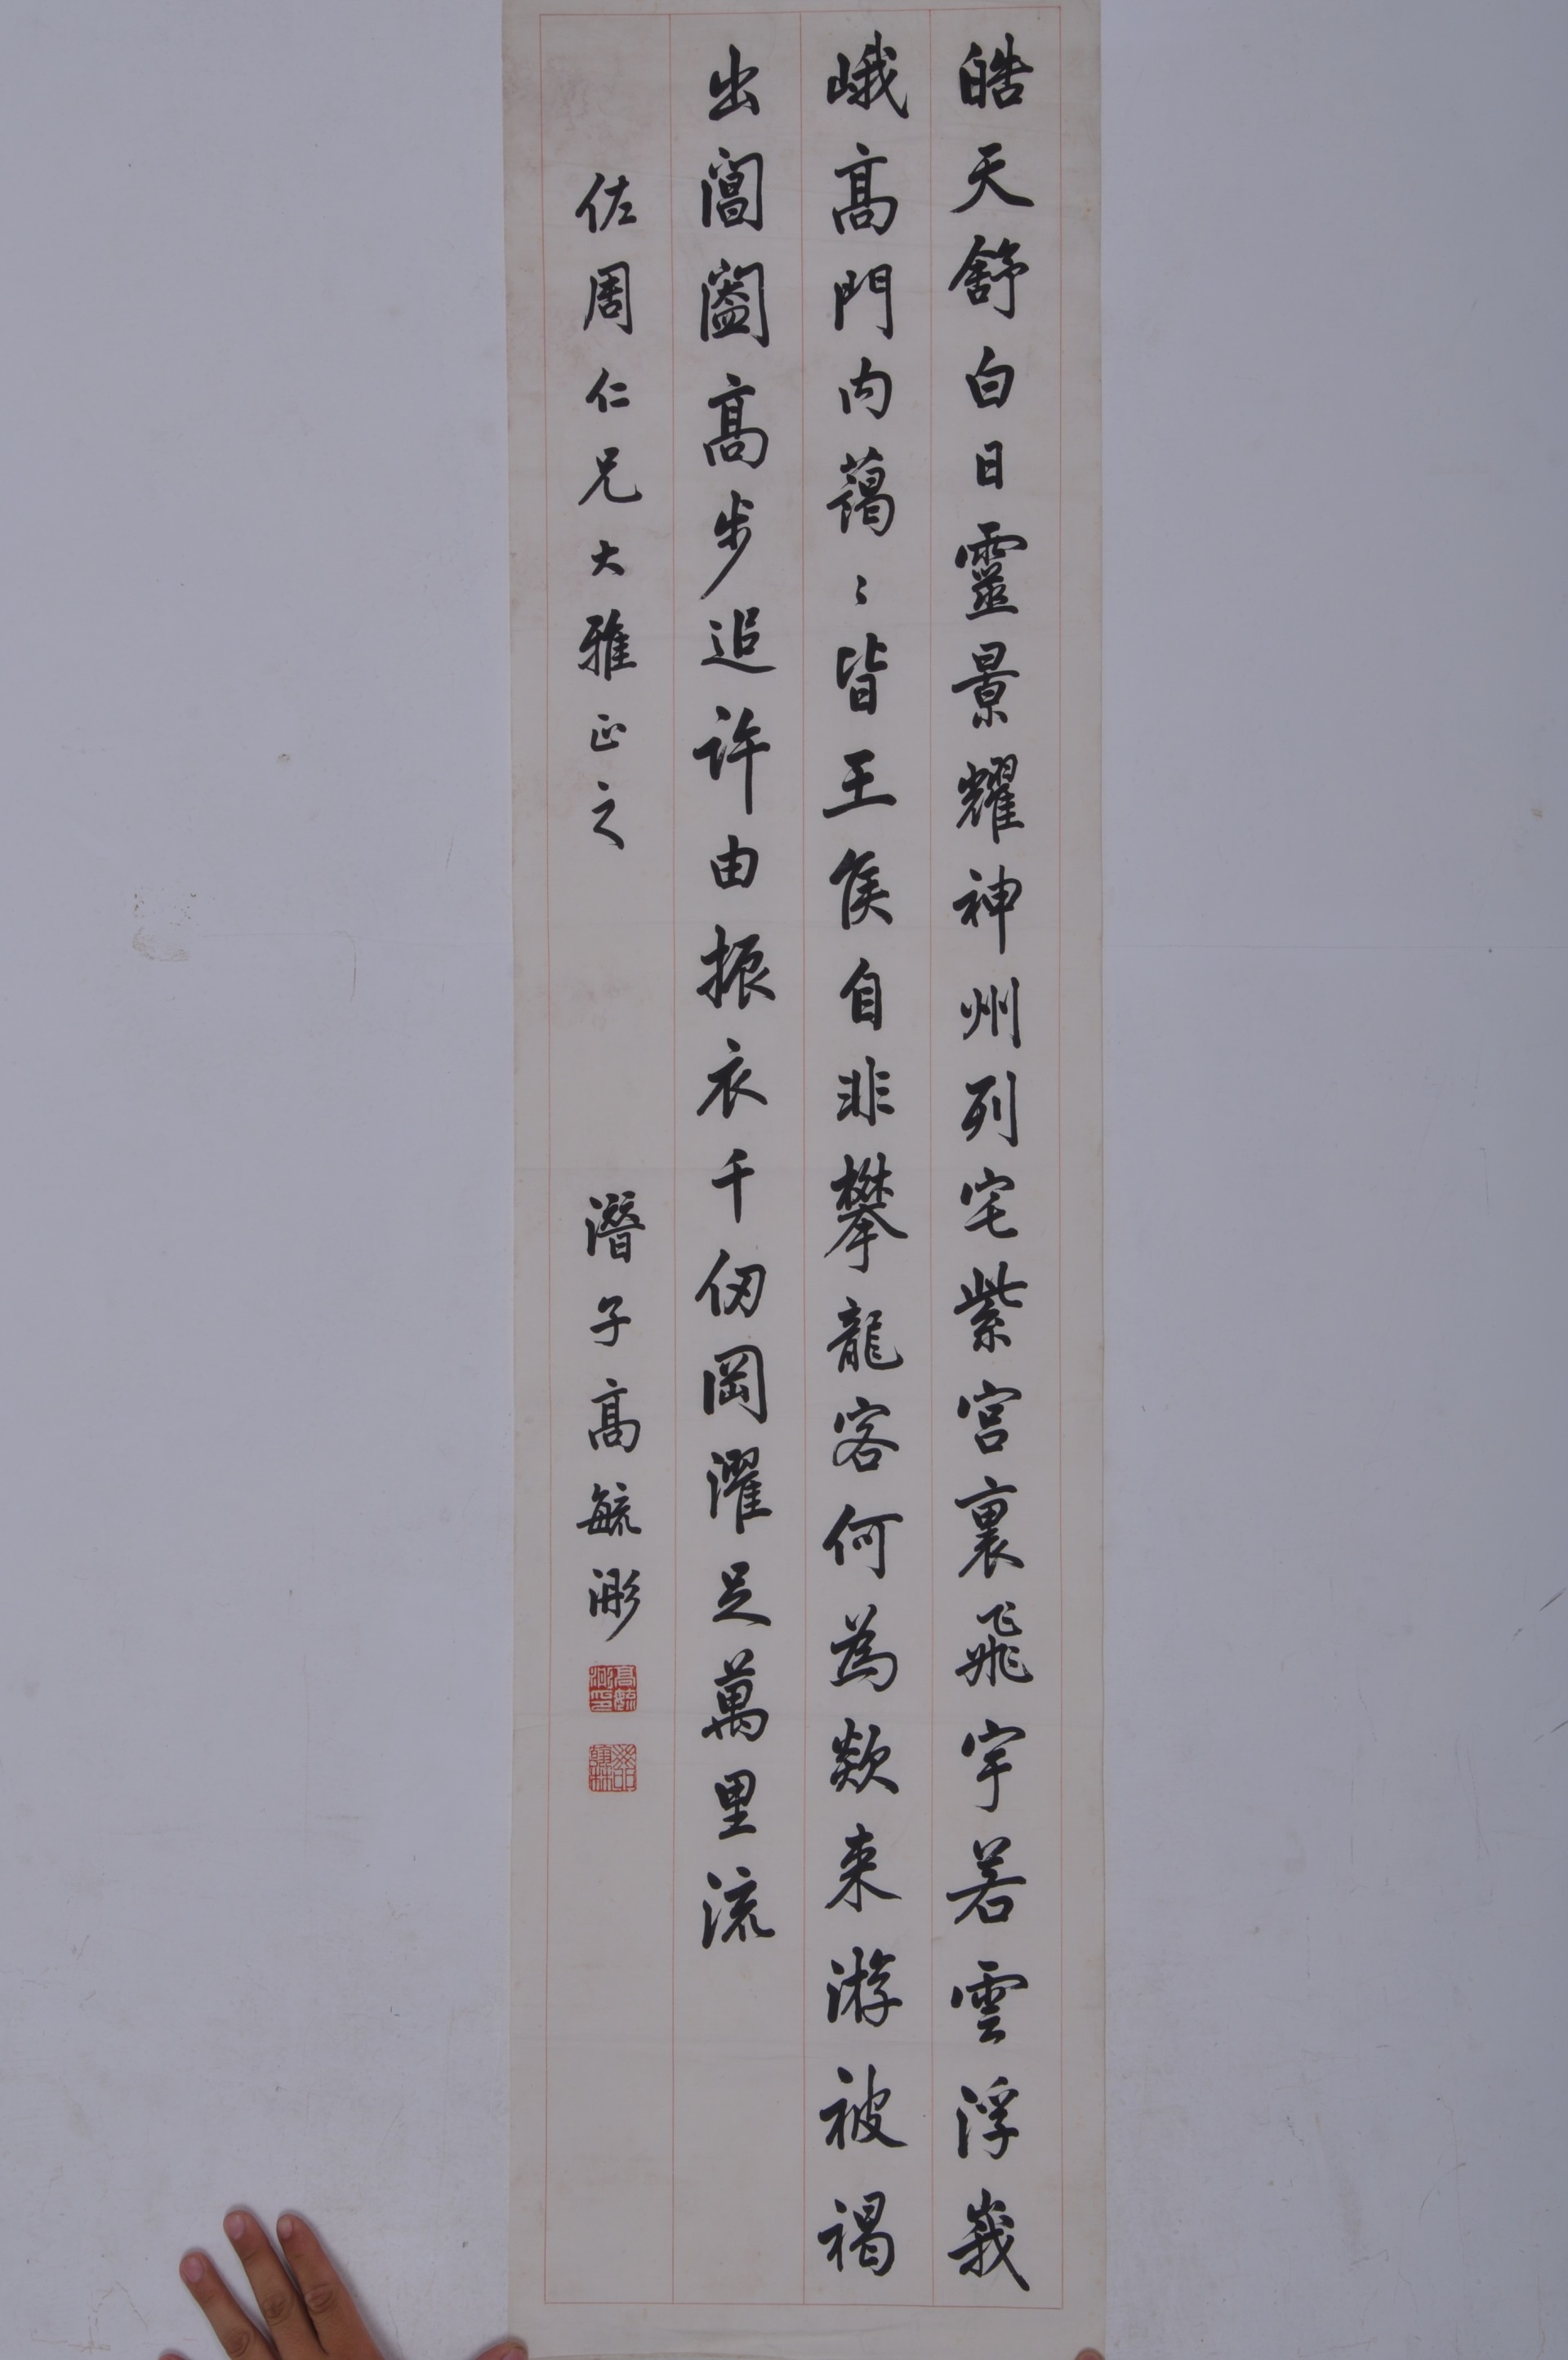 皓天舒白日靈景耀神州列宅紫宮裏飛宇若雲浮峩
峨高門內藹〻皆王侯自非攀龍客何為欻来游被褐
出閶闔高步追許由振衣千仞岡濯足萬里流
佐周仁兄大雅正之
潛子高毓浵